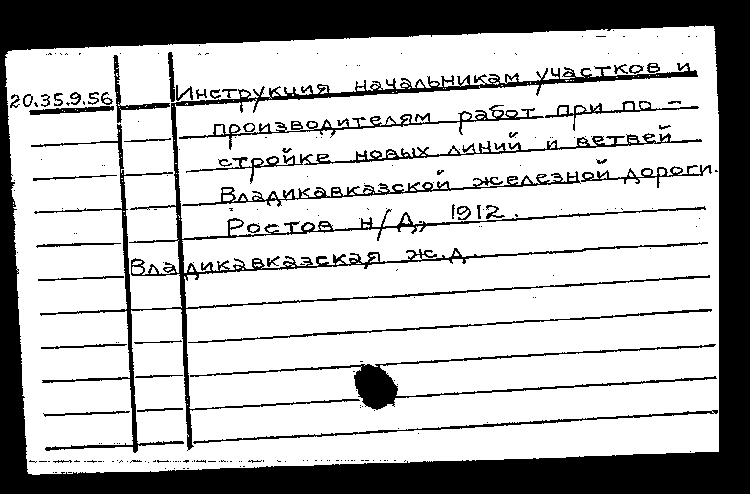 20.35.9.56 Инструкция начальникам участков и
производителям работ при по-
стройке новых линий и ветвей
Владикавказской железной дороги.
Ростов н/Д., 1912.
Владикавказская ж.д.